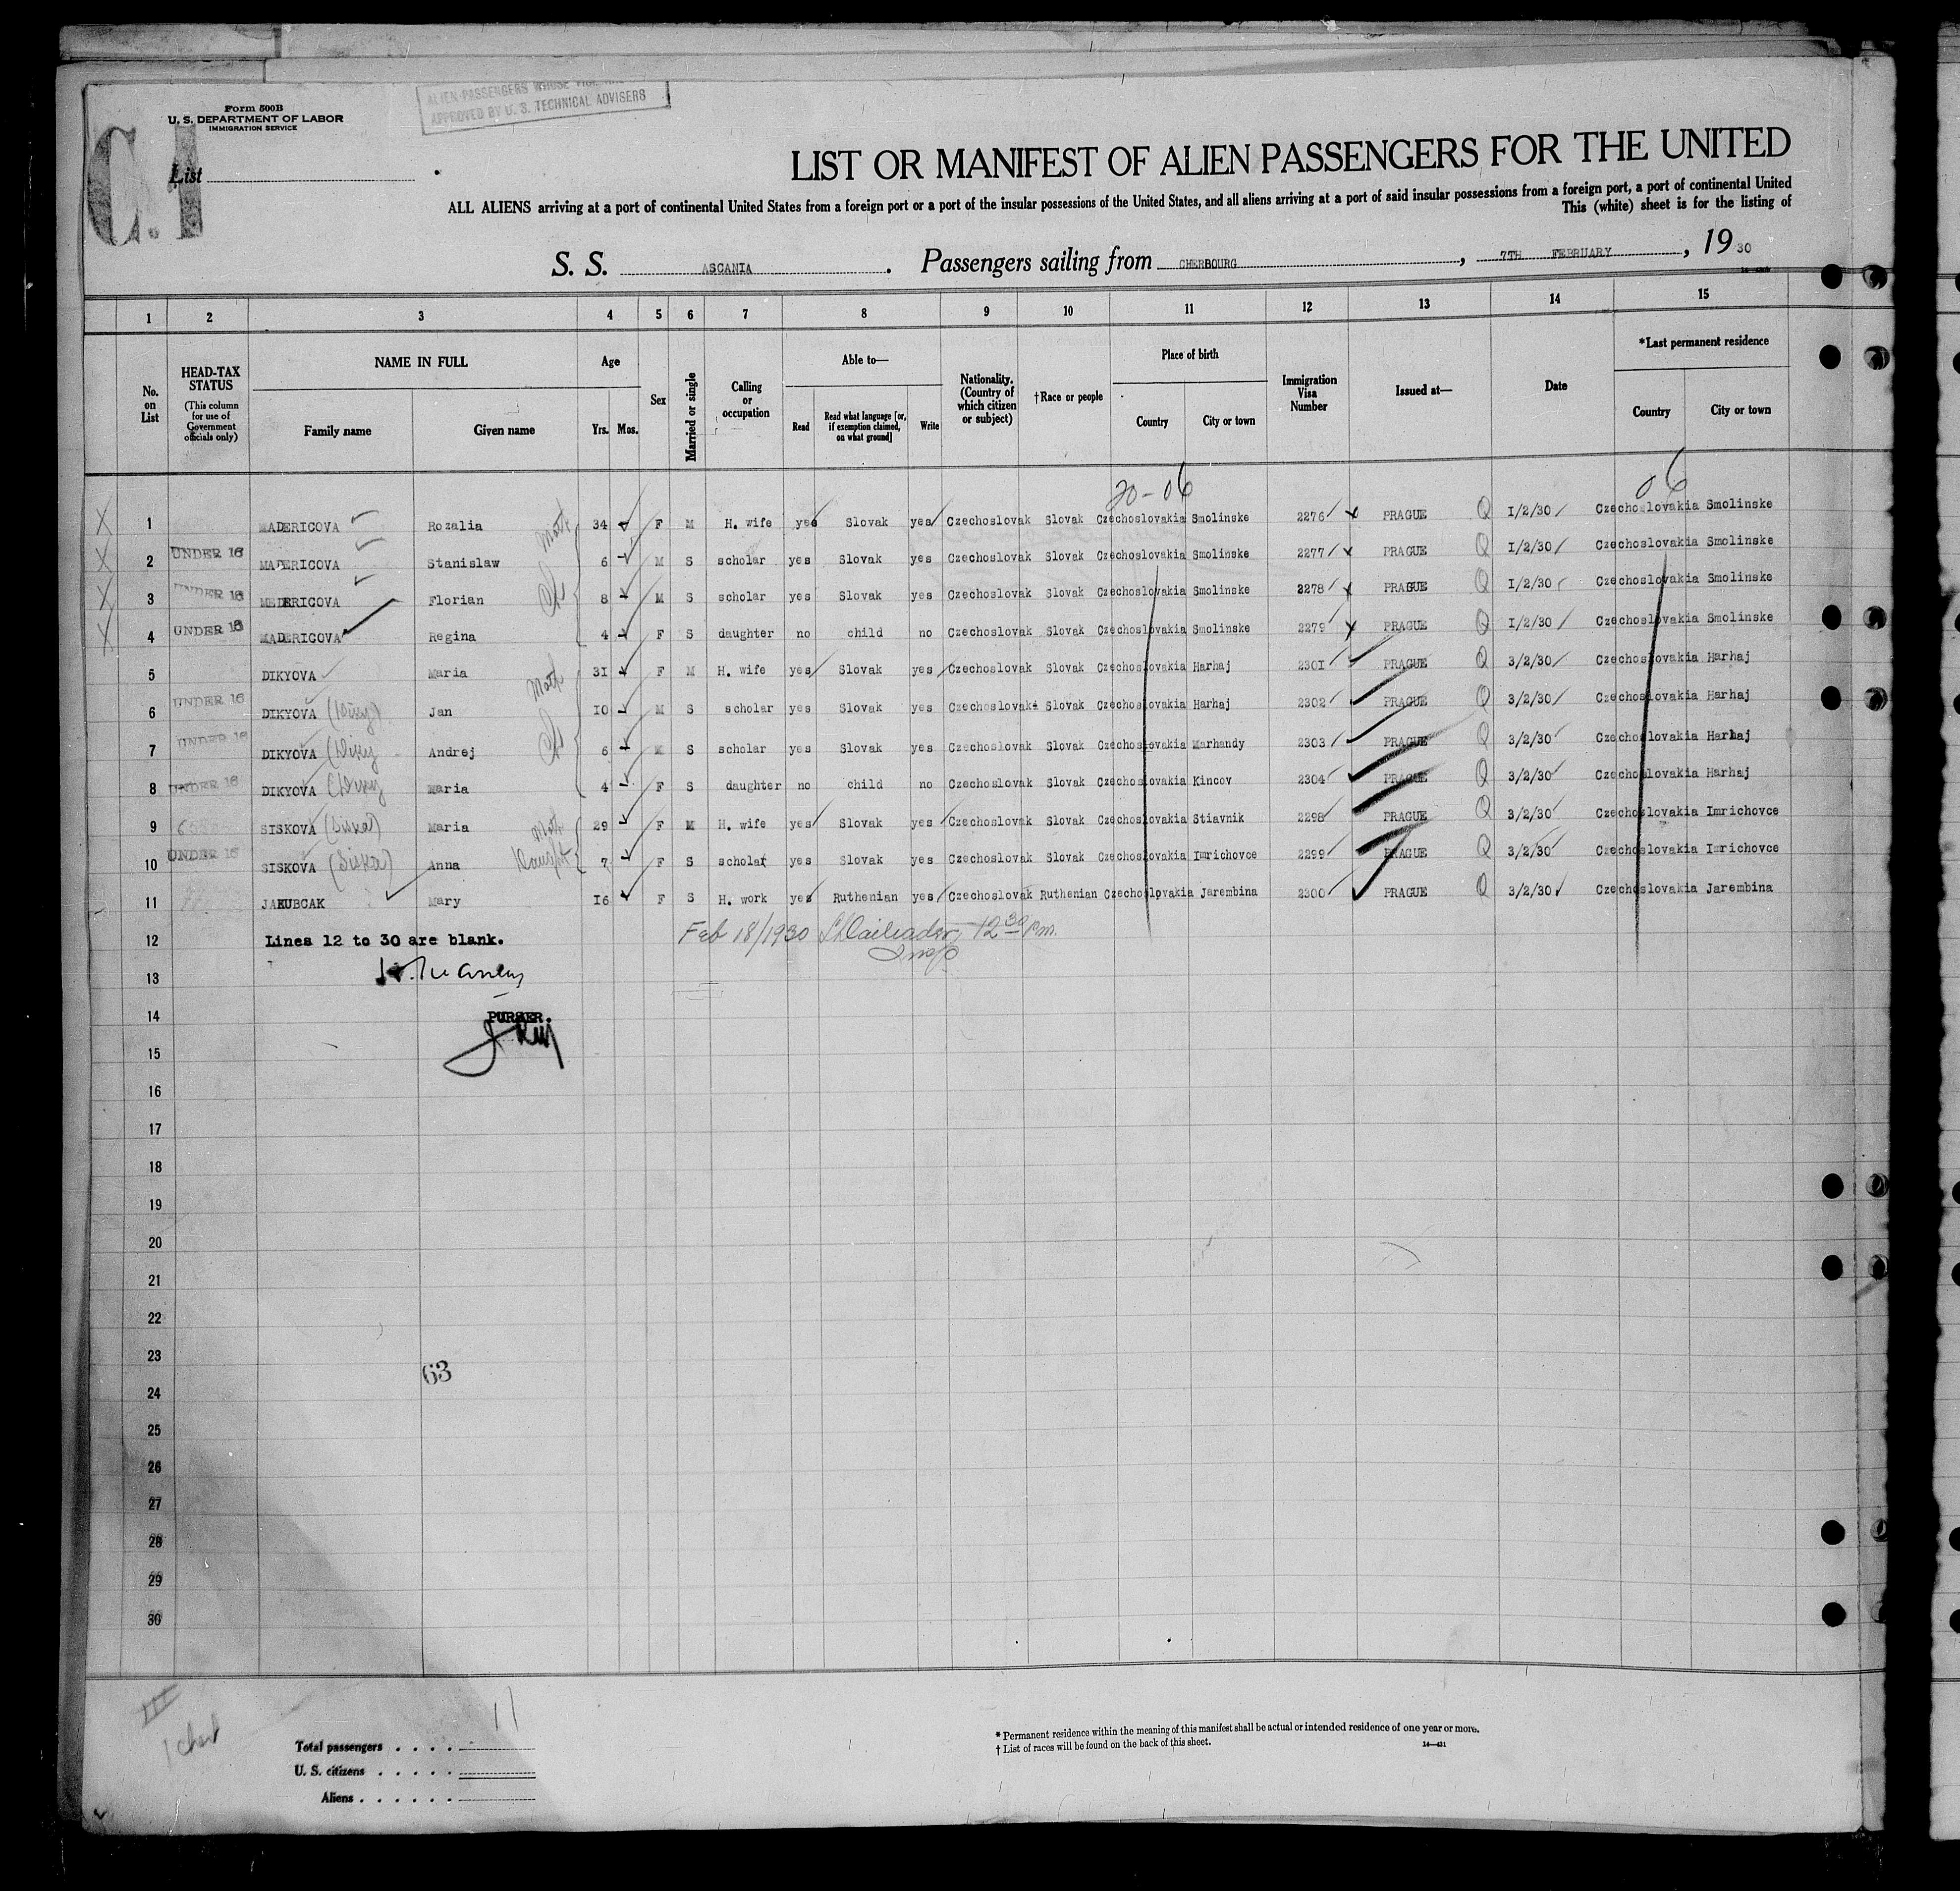 ALIEN PASSENGERS WHOSE
APPROVED BY U. S. TECHNICAL ADVISERS
Form 500B
U. S. DEPARTMENT OF LABOR
IMMIGRATION SERVICE
List
LIST OR MANIFEST OF ALIEN PASSENGERS FOR THE UNITED
ALL ALIENS arriving at a port of continental United States from a foreign port or a port of the insular possessions of the United States, and all aliens arriving at a port of said insular possessions from a foreign port, a port of continental United
This (white) sheet is for the listing of
S. S. ASCANIA. Passengers sailing from CHERBOURG, 7TH FEBRUARY, 19 30
1 2 3 4 5 6 7 8 9 10 11 12 13 14 15
No. on List
HEAD-TAX STATUS (This column for use of Government officials only)
NAME IN FULL Family name Given name
Age Yrs. Mos.
Sex
Married or single
Calling or occupation
Able to— Read Read what language [or, if exemption claimed, on what ground] Write
Nationality. (Country of which citizen or subject)
†Race or people
Place of birth Country City or town
Immigration Visa Number
Issued at—
Date
*Last permanent residence Country City or town
20-06 06
1 MADERICOVA Rozalia 34 F M H. wife yes Slovak yes Czechoslovak Slovak Czechoslovakia Smolinske 2276 PRAGUE Q 1/2/30 Czechoslovakia Smolinske
2 UNDER 16 MADERICOVA Stanislaw 6 M S scholar yes Slovak yes Czechoslovak Slovak Czechoslovakia Smolinske 2277 PRAGUE Q 1/2/30 Czechoslovakia Smolinske
3 UNDER 16 MEDERICOVA Florian 8 M S scholar yes Slovak yes Czechoslovak Slovak Czechoslovakia Smolinske 2278 PRAGUE Q 1/2/30 Czechoslovakia Smolinske
4 UNDER 16 MADERICOVA Regina 4 F S daughter no child no Czechoslovak Slovak Czechoslovakia Smolinske 2279 PRAGUE Q 1/2/30 Czechoslovakia Smolinske
5 DIKYOVA Maria 31 F M H. wife yes Slovak yes Czechoslovak Slovak Czechoslovakia Harhaj 2301 PRAGUE Q 3/2/30 Czechoslovakia Harhaj
6 UNDER 16 DIKYOVA Jan 10 M S scholar yes Slovak yes Czechoslovak Slovak Czechoslovakia Harhaj 2302 PRAGUE Q 3/2/30 Czechoslovakia Harhaj
7 UNDER 16 DIKYOVA Andrej 6 M S scholar yes Slovak yes Czechoslovak Slovak Czechoslovakia Marhandy 2303 PRAGUE Q 3/2/30 Czechoslovakia Harhaj
8 UNDER 16 DIKYOVA Maria 4 F S daughter no child no Czechoslovak Slovak Czechoslovakia Kincov 2304 PRAGUE Q 3/2/30 Czechoslovakia Harhaj
9 SISKOVA (Siska) Maria 29 F M H. wife yes Slovak yes Czechoslovak Slovak Czechoslovakia Stiavnik 2298 PRAGUE Q 3/2/30 Czechoslovakia Imrichovce
10 UNDER 16 SISKOVA (Siska) Anna Daught 7 F S scholar yes Slovak yes Czechoslovak Slovak Czechoslovakia Imrichovce 2299 PRAGUE Q 3/2/30 Czechoslovakia Imrichovce
11 JAKUBCAK Mary 16 F S H. work yes Ruthenian yes Czechoslovak Ruthenian Czechoslovakia Jarembina 2300 PRAGUE Q 3/2/30 Czechoslovakia Jarembina
12 Lines 12 to 30 are blank. Feb 18/1930 12 30 pm.
Insp
13
14 PURSER.
15
16
17
18
19
20
21
22
23
63
24
25
26
27
28
29
30
III
11
Total passengers
U. S. citizens
Aliens
* Permanent residence within the meaning of this manifest shall be actual or intended residence of one year or more.
† List of races will be found on the back of this sheet. 14—431